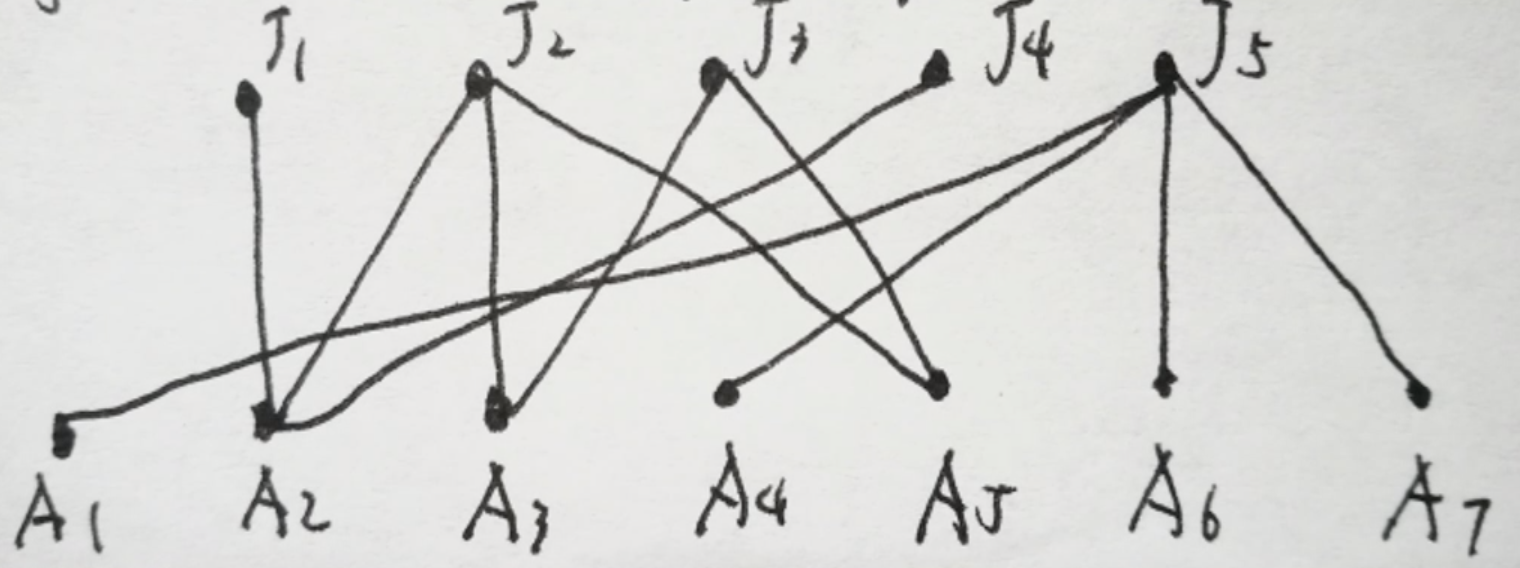 J1 J2 J3 J4 J5
A1 A2 A3 A4 A5 A6 A7